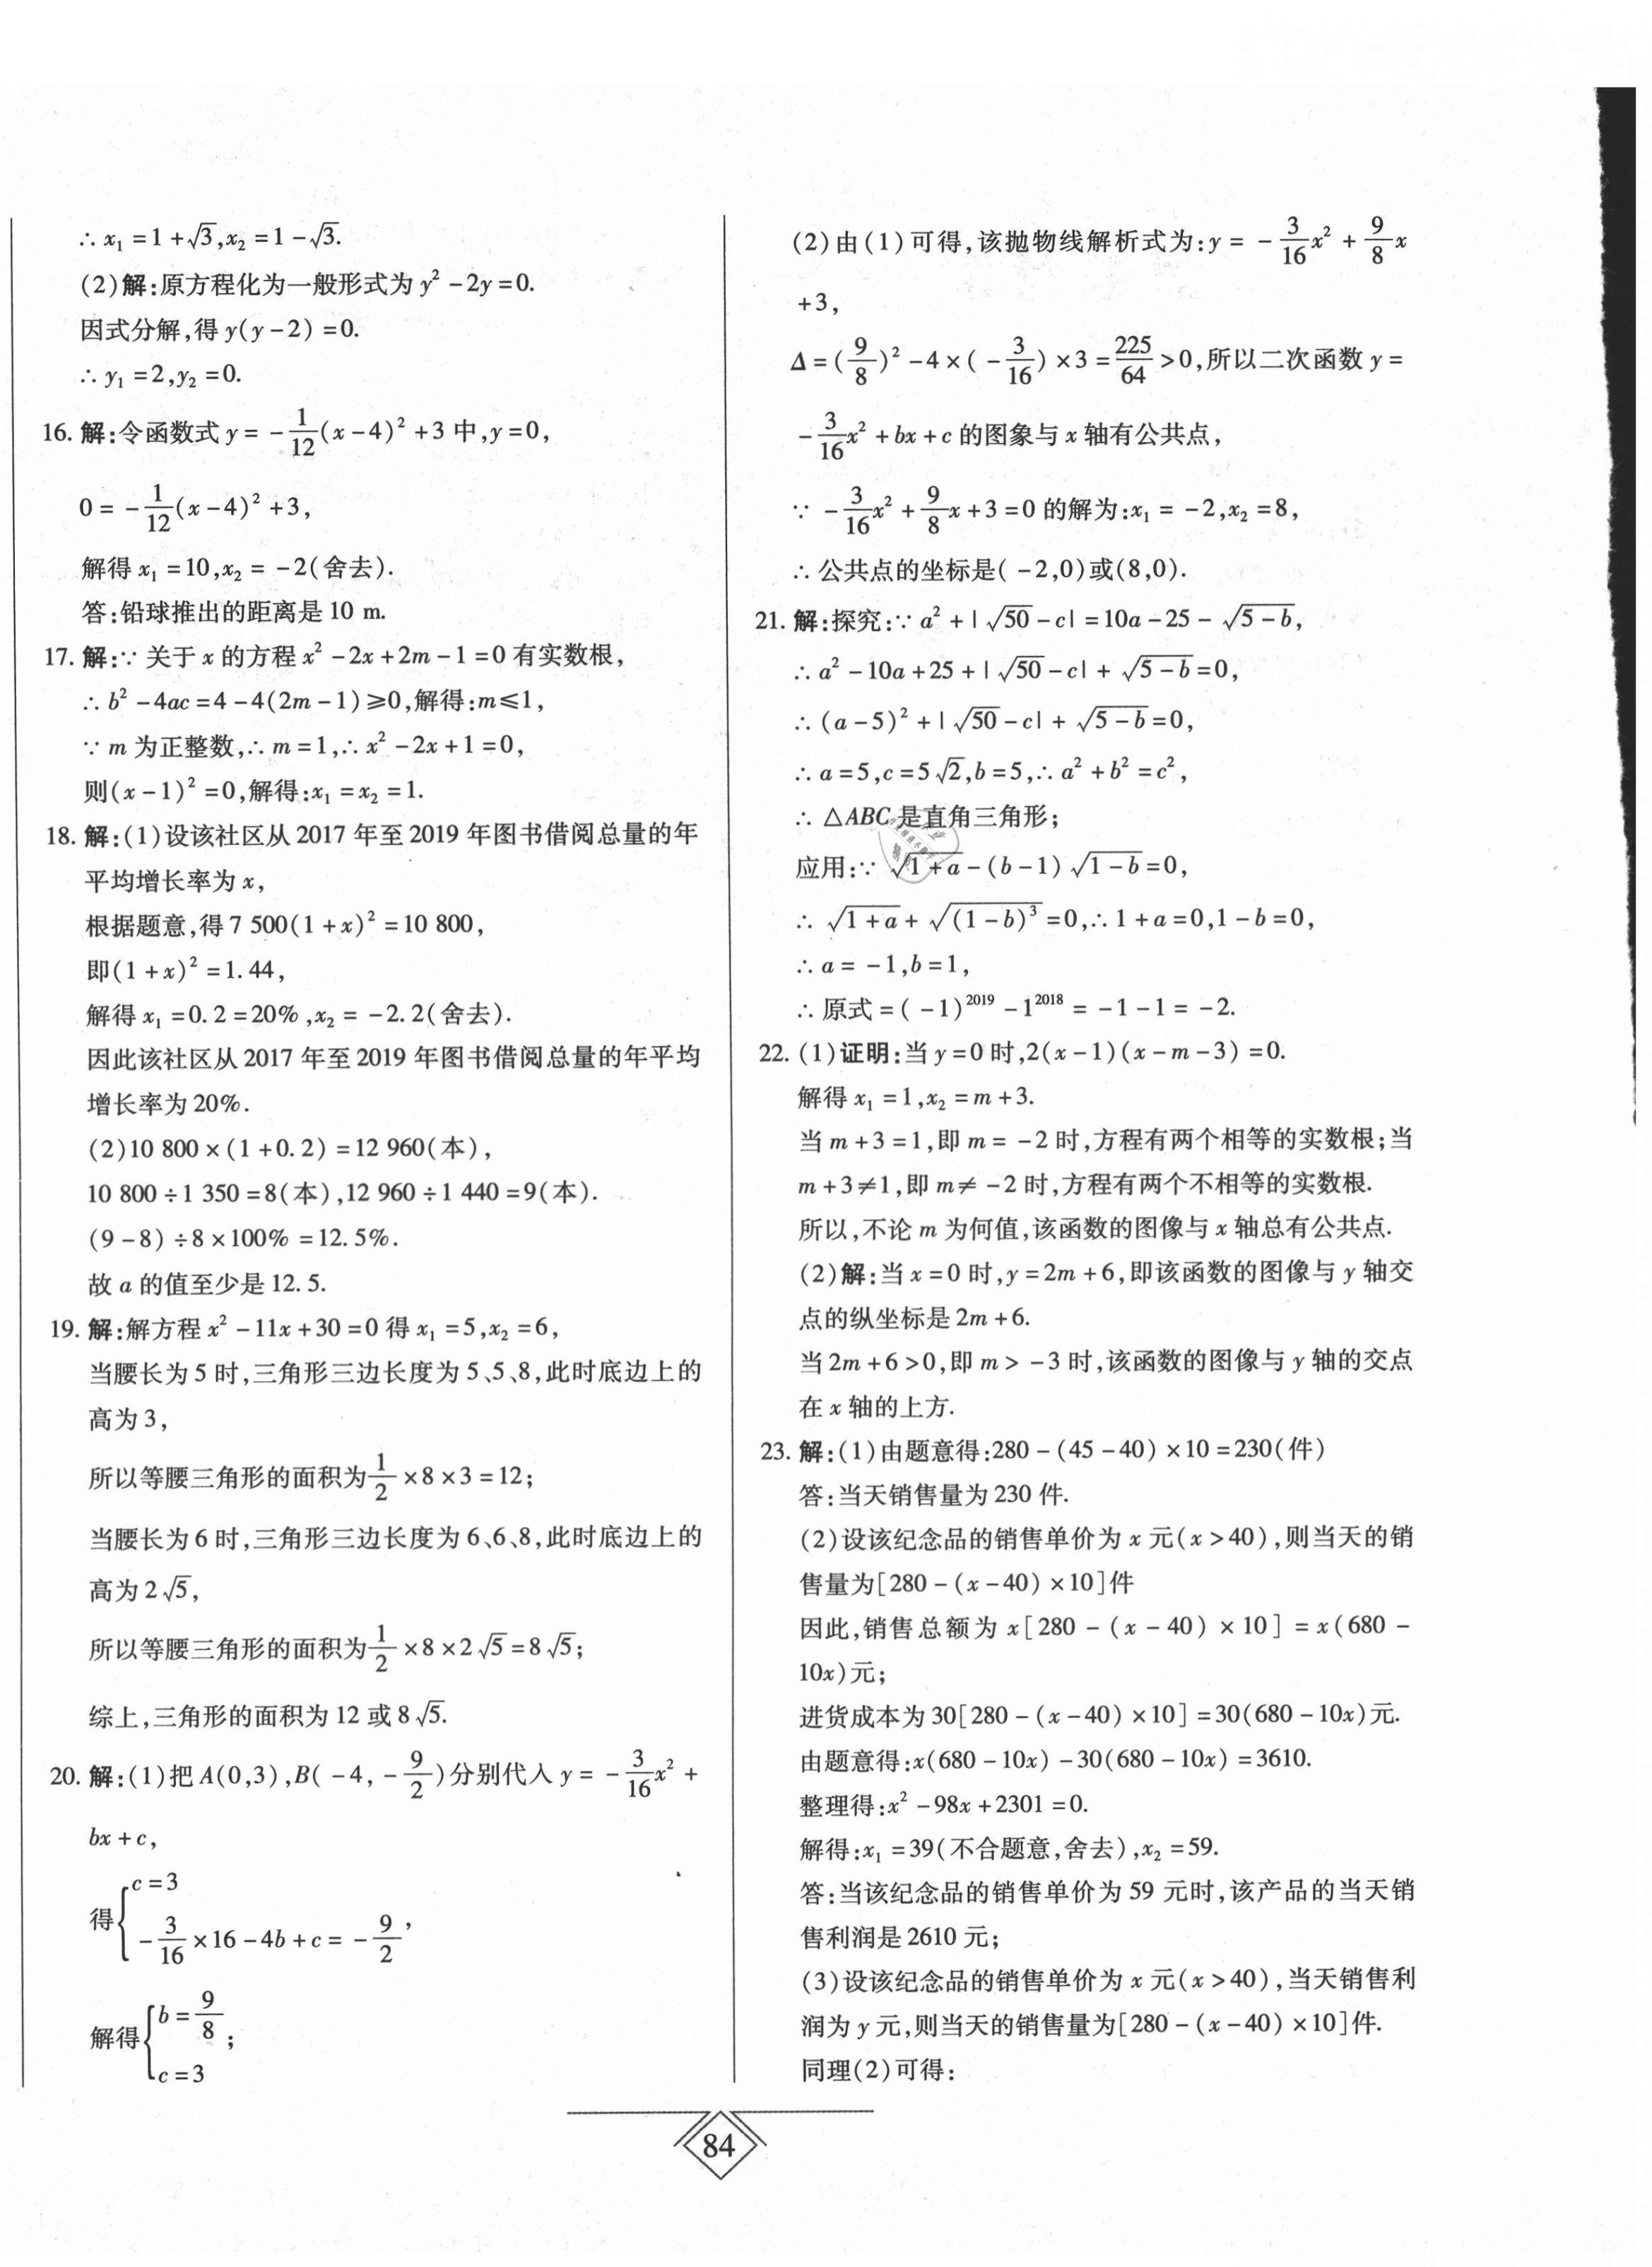 ∴ x₁ = 1 + √3, x₂ = 1 − √3.
(2)解:原方程化为一般形式为 y² − 2y = 0.
因式分解,得 y(y − 2) = 0.
∴ y₁ = 2, y₂ = 0.
16. 解:令函数式 y = −1/12(x − 4)² + 3 中, y = 0,
0 = −1/12(x − 4)² + 3,
解得 x₁ = 10, x₂ = −2(舍去).
答:铅球推出的距离是 10 m.
17. 解:∵ 关于 x 的方程 x² − 2x + 2m − 1 = 0 有实数根,
∴ b² − 4ac = 4 − 4(2m − 1) ≥ 0,解得:m ≤ 1,
∵ m 为正整数,∴ m = 1,∴ x² − 2x + 1 = 0,
则(x − 1)² = 0,解得:x₁ = x₂ = 1.
18. 解:(1)设该社区从 2017 年至 2019 年图书借阅总量的年
平均增长率为 x,
根据题意,得 7 500(1 + x)² = 10 800,
即(1 + x)² = 1.44,
解得 x₁ = 0.2 = 20%, x₂ = −2.2(舍去).
因此该社区从 2017 年至 2019 年图书借阅总量的年平均
增长率为 20%.
(2)10 800 × (1 + 0.2) = 12 960(本),
10 800 ÷ 1 350 = 8(本), 12 960 ÷ 1 440 = 9(本).
(9 − 8) ÷ 8 × 100% = 12.5%.
故 a 的值至少是 12.5.
19. 解:解方程 x² − 11x + 30 = 0 得 x₁ = 5, x₂ = 6,
当腰长为 5 时,三角形三边长度为 5、5、8,此时底边上的
高为 3,
所以等腰三角形的面积为 1/2 × 8 × 3 = 12;
当腰长为 6 时,三角形三边长度为 6、6、8,此时底边上的
高为 2√5,
所以等腰三角形的面积为 1/2 × 8 × 2√5 = 8√5;
综上,三角形的面积为 12 或 8√5.
20. 解:(1)把 A(0,3), B(−4, −9/2)分别代入 y = −3/16x² +
bx + c,
得{c = 3
−3/16 × 16 − 4b + c = −9/2,
解得{b = 9/8
c = 3;
(2)由(1)可得,该抛物线解析式为:y = −3/16x² + 9/8x
+3,
Δ = (9/8)² − 4 × (−3/16) × 3 = 225/64 > 0,所以二次函数 y =
−3/16x² + bx + c 的图象与 x 轴有公共点,
∵ −3/16x² + 9/8x + 3 = 0 的解为:x₁ = −2, x₂ = 8,
∴ 公共点的坐标是(−2,0)或(8,0).
21. 解:探究:∵ a² + |√50 − c| = 10a − 25 − √(5 − b),
∴ a² − 10a + 25 + |√50 − c| + √(5 − b) = 0,
∴ (a − 5)² + |√50 − c| + √(5 − b) = 0,
∴ a = 5, c = 5√2, b = 5,∴ a² + b² = c²,
∴ △ABC 是直角三角形;
应用:∵ √(1 + a) − (b − 1)√(1 − b) = 0,
∴ √(1 + a) + √((1 − b)³) = 0,∴ 1 + a = 0, 1 − b = 0,
∴ a = −1, b = 1,
∴ 原式 = (−1)²⁰¹⁹ − 1²⁰¹⁸ = −1 − 1 = −2.
22. (1)证明:当 y = 0 时, 2(x − 1)(x − m − 3) = 0.
解得 x₁ = 1, x₂ = m + 3.
当 m + 3 = 1,即 m = −2 时,方程有两个相等的实数根;当
m + 3 ≠ 1,即 m ≠ −2 时,方程有两个不相等的实数根.
所以,不论 m 为何值,该函数的图像与 x 轴总有公共点.
(2)解:当 x = 0 时, y = 2m + 6,即该函数的图像与 y 轴交
点的纵坐标是 2m + 6.
当 2m + 6 > 0,即 m > −3 时,该函数的图像与 y 轴的交点
在 x 轴的上方.
23. 解:(1)由题意得:280 − (45 − 40) × 10 = 230(件)
答:当天销售量为 230 件.
(2)设该纪念品的销售单价为 x 元(x > 40),则当天的销
售量为[280 − (x − 40) × 10]件
因此,销售总额为 x[280 − (x − 40) × 10] = x(680 −
10x)元;
进货成本为 30[280 − (x − 40) × 10] = 30(680 − 10x)元.
由题意得:x(680 − 10x) − 30(680 − 10x) = 3610.
整理得:x² − 98x + 2301 = 0.
解得:x₁ = 39(不合题意,舍去), x₂ = 59.
答:当该纪念品的销售单价为 59 元时,该产品的当天销
售利润是 2610 元;
(3)设该纪念品的销售单价为 x 元(x > 40),当天销售利
润为 y 元,则当天的销售量为[280 − (x − 40) × 10]件.
同理(2)可得:
84